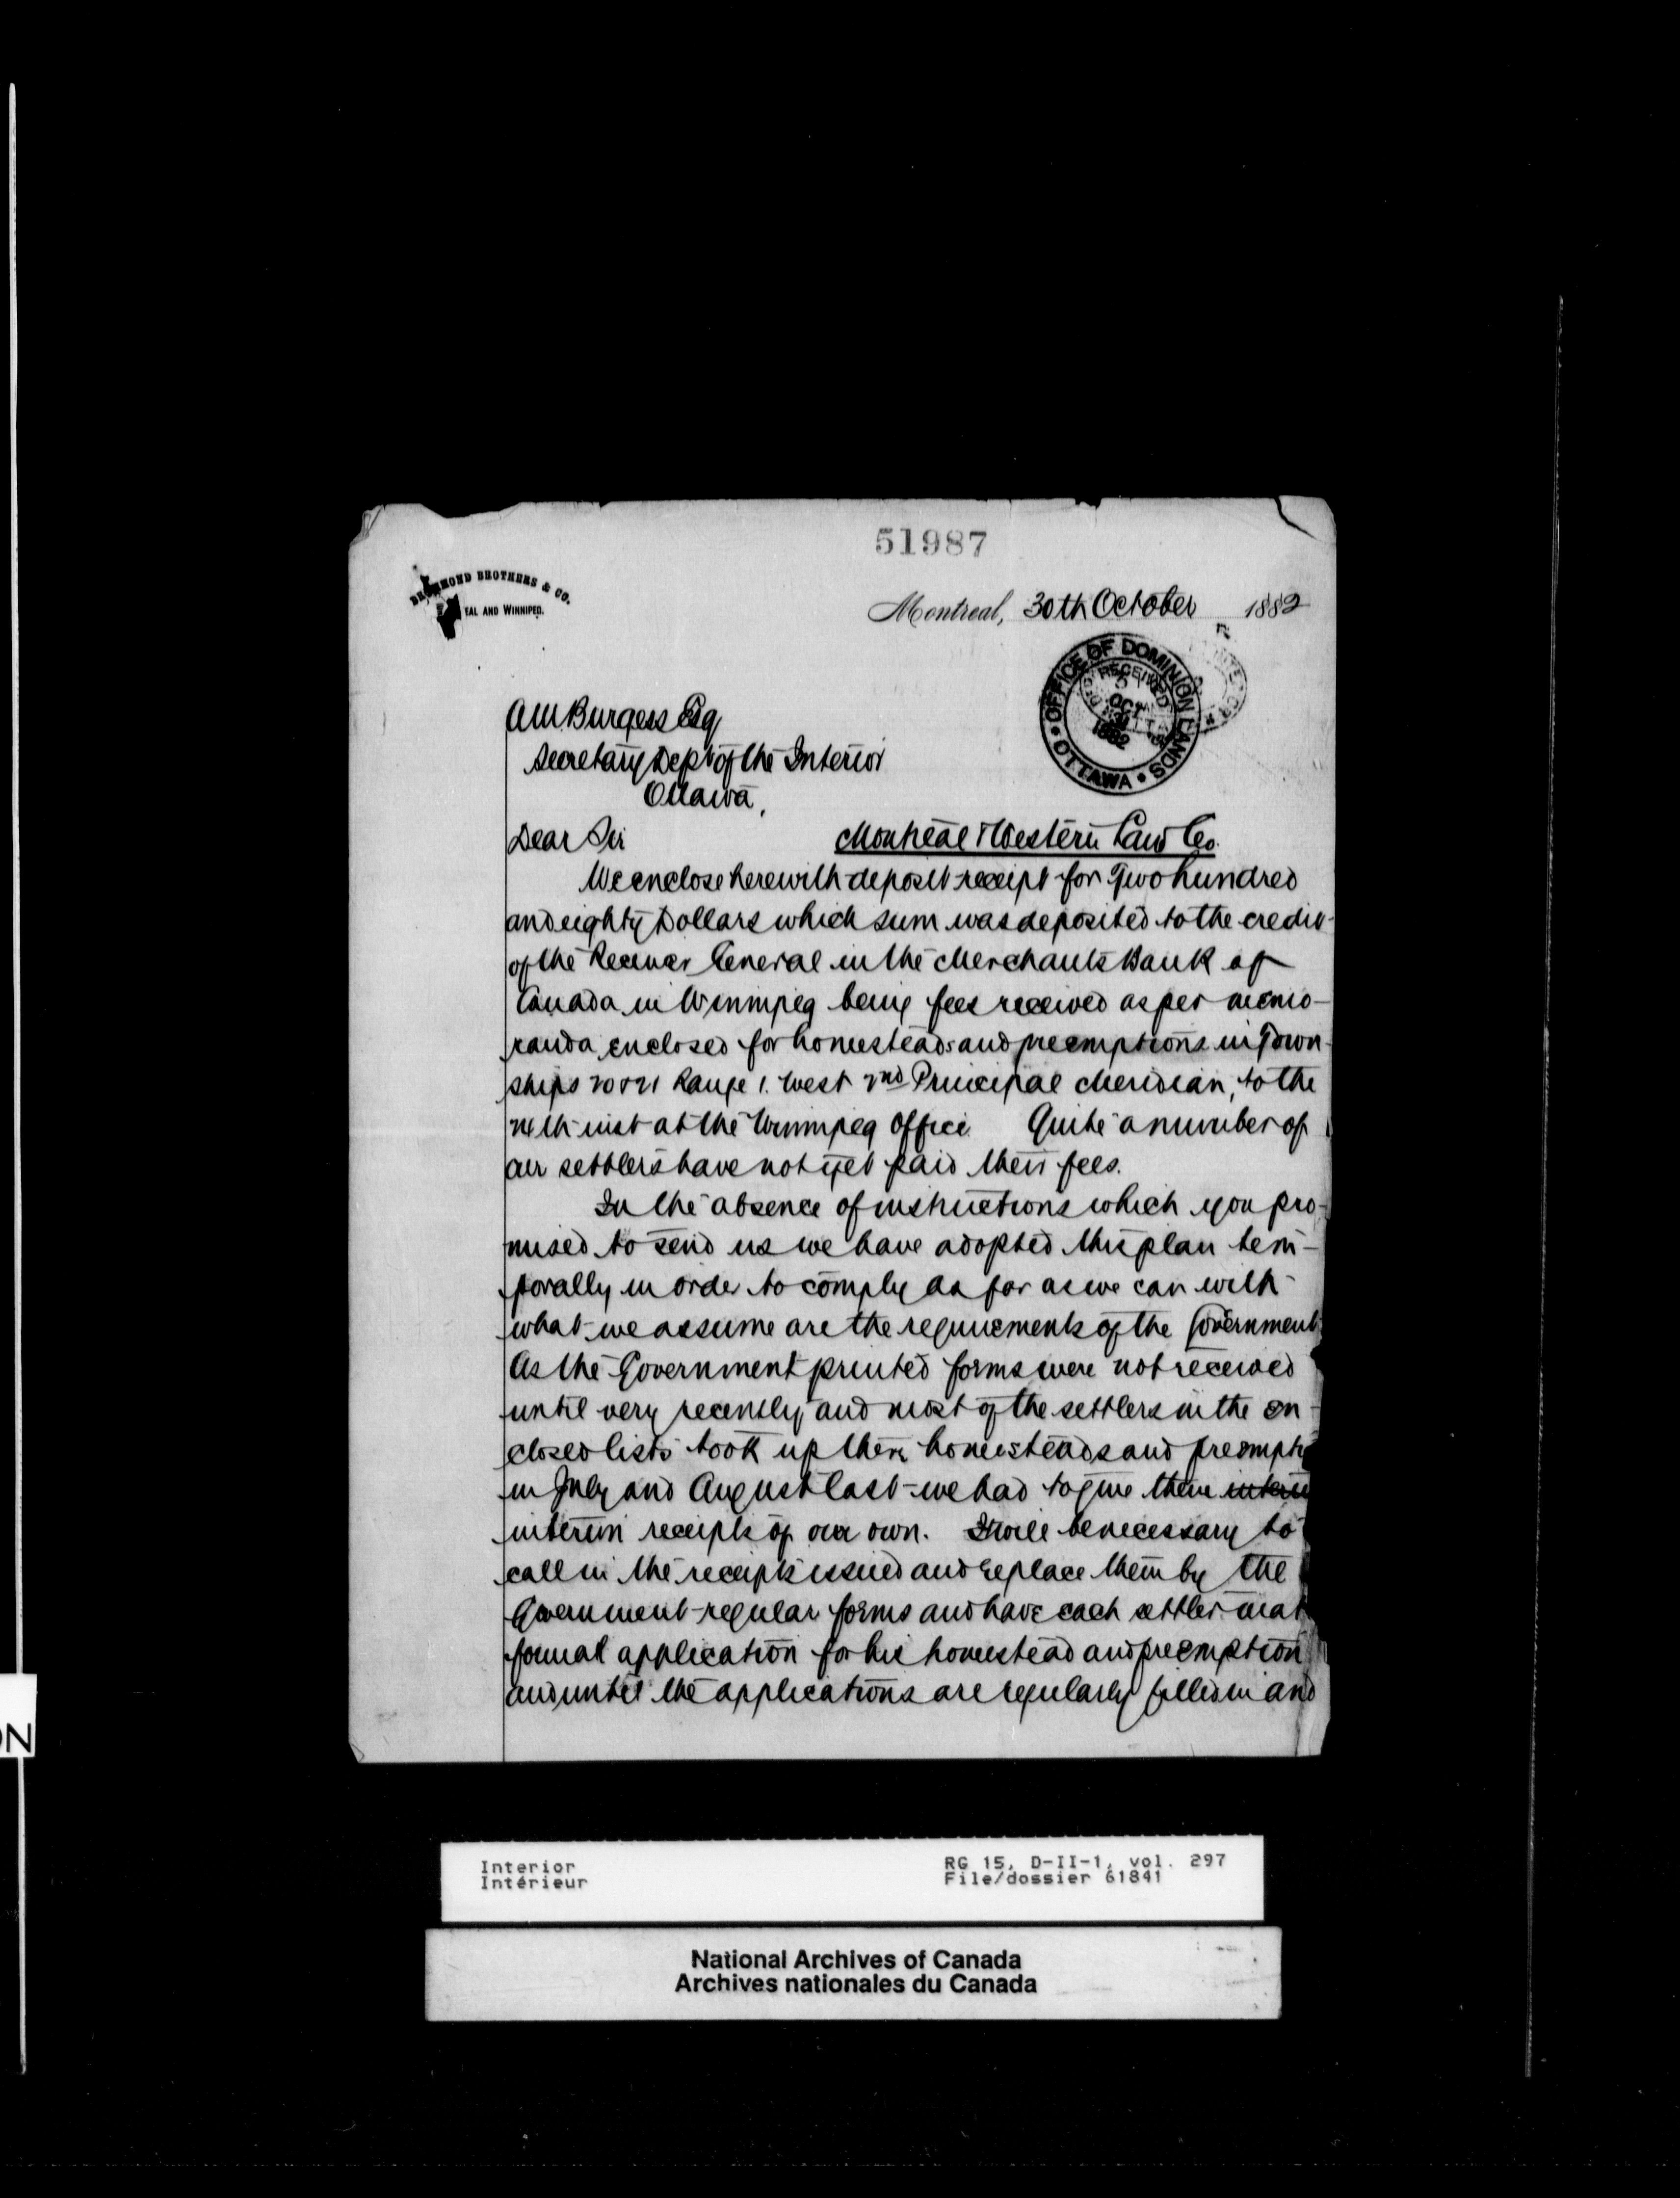 51987
DRUMMOND BROTHERS & CO.
EAL AND WINNIPEG.
Montreal, 30th October 1882
OFFICE OF DOMINION LANDS
OTTAWA
RECEIVED
OCT
31
1882
AM Burgess Esq
Secretary Dept of the Interior
Ottawa,
Dear Sir
Montreal & Western Land Co.
We enclose herewith deposit receipt for Two hundred
and eighty Dollars which sum was deposited to the credit
of the Receiver General in the Merchants Bank of
Canada in Winnipeg being fees received as per memo-
randa enclosed for homesteads and preemptions in Town-
ships 20 & 21 Range 1. West 2nd Principal Meridian, to the
inst at the Winnipeg Office Quite a number of
our settlers have not yet paid their fees.
In the absence of instructions which you pro-
mised to send us we have adopted this plan tem-
porally in order to comply as far as we can with
what we assume are the requirements of the Government.
As the Government printed forms were not received
until very recently and most of the settlers in the en-
closed lists took up their homesteads and preempti
in July and August last - we had to give them
interim receipts of our own. It will be necessary to
call in the receipts issued and replace them by the
Government regular forms and have each settler mak
formal application for his homestead and preemption
and until the applications are regularly filled in and
Interior
Intérieur
RG 15, D-II-1, vol. 297
File/dossier 61841
National Archives of Canada
Archives nationales du Canada
ON